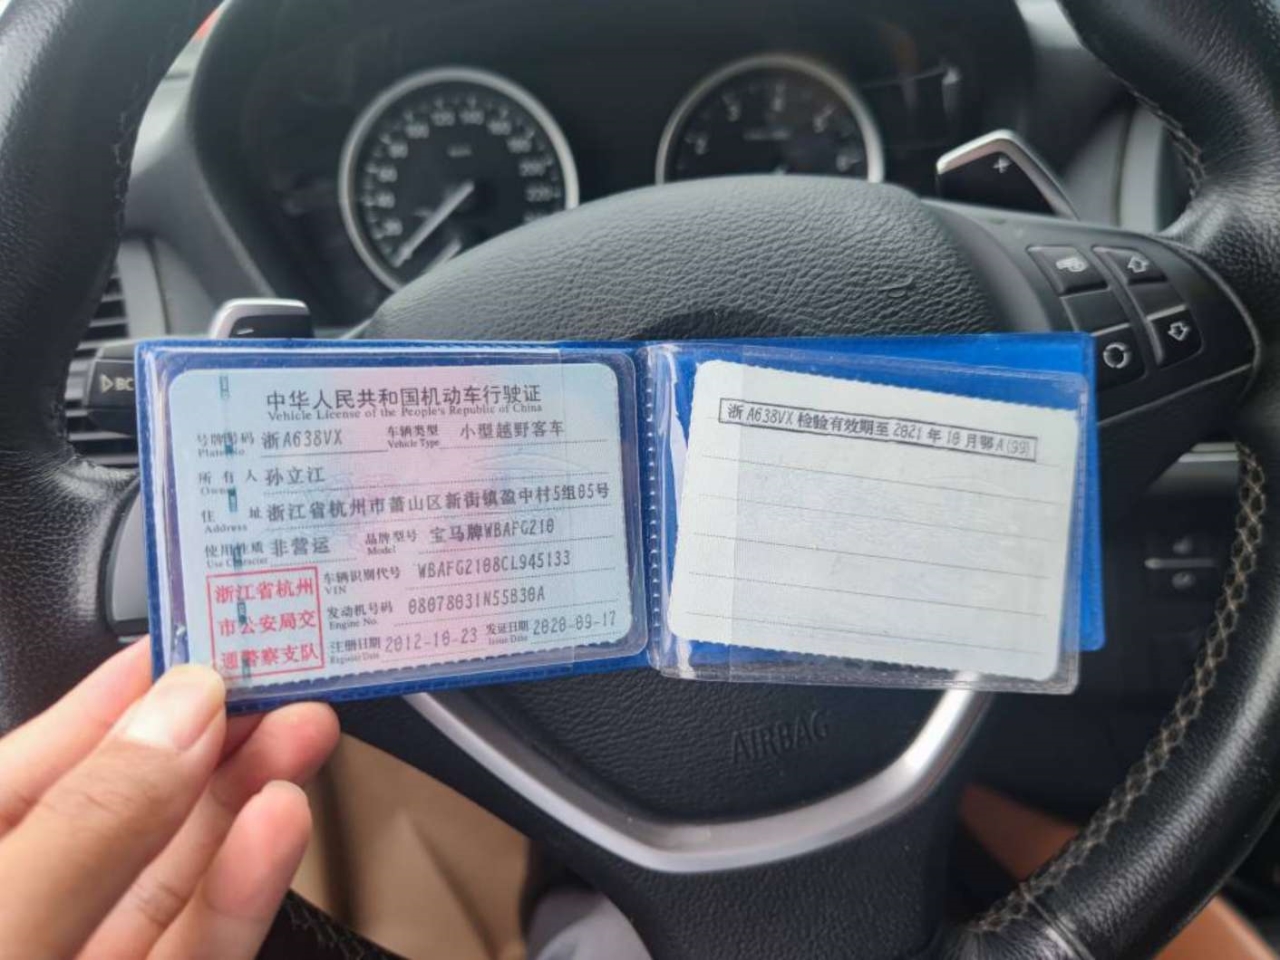 中华人民共和国机动车行驶证
Vehicle License of the People's Republic of China
号牌号码 浙A638VX 车辆类型 小型越野客车
Plate No. Vehicle Type
所有人 孙立江
Owner
住址 浙江省杭州市萧山区新街镇盈中村5组05号
Address
使用性质 非营运 品牌型号 宝马牌WBAFG210
Use Character Model
浙江省杭州
市公安局交
通警察支队
车辆识别代号 WBAFG2108CL945133
VIN
发动机号码 08078031N55B30A
Engine No.
注册日期 2012-10-23 发证日期 2020-09-17
Register Date Issue Date
浙A638VX 检验有效期至 2021年10月鄂A(99)
AIRBAG